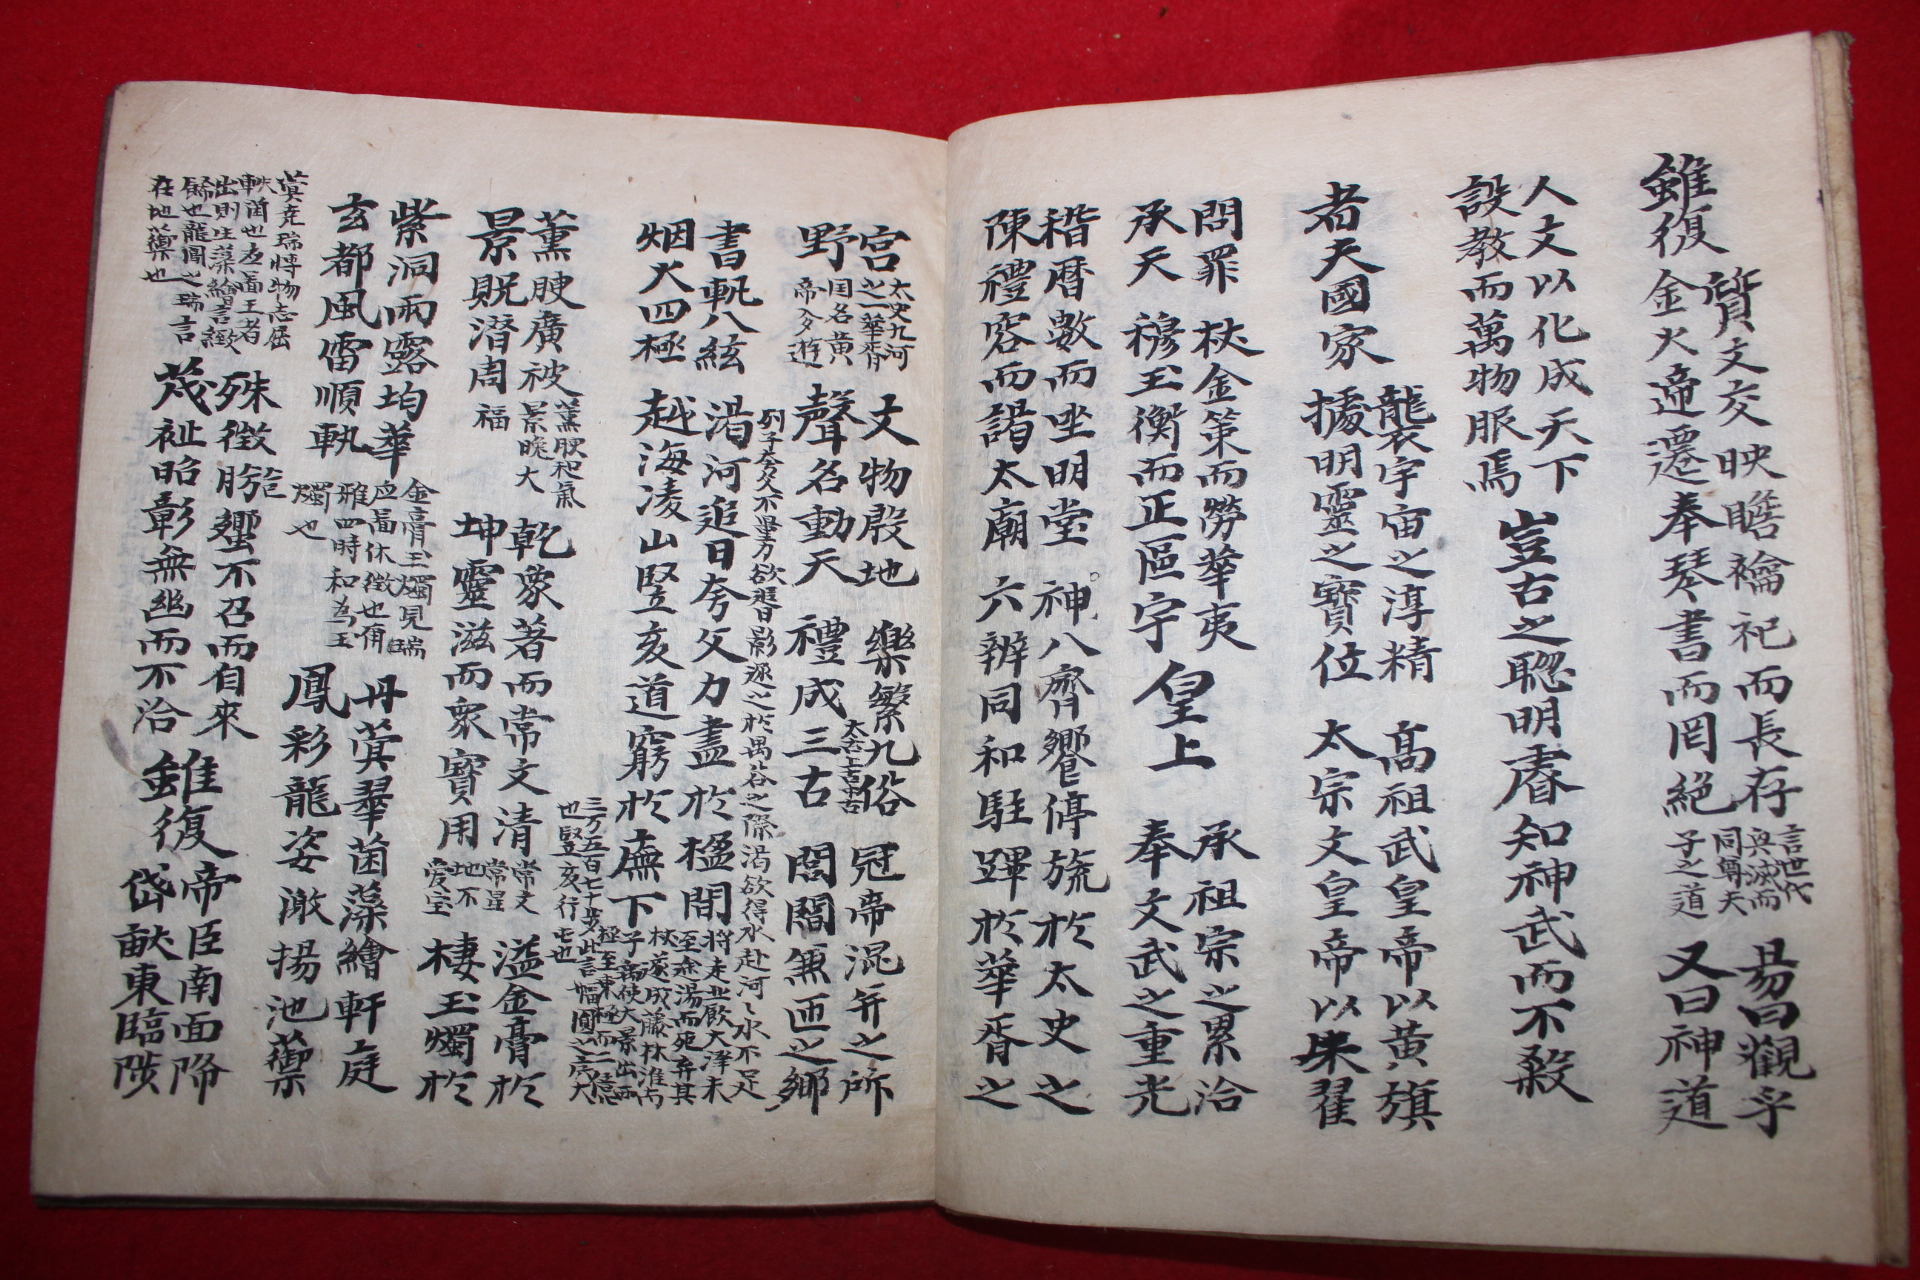 雖復
質文交映瞻禴祀而長存
金火遞遷奉琴書而罔絕
言世代
與滅而
同尊夫
子之道
易曰觀乎
又曰神道
人文以化成天下
設教而萬物服焉
豈古之聦明睿知神武而不殺
者天國家
龍衮宇宙之淳精 高祖武皇帝以黄旗
據明靈之寶位 太宗文皇帝以朱翟
問罪 杖金策而勞華夷
承天 穆玉衡而正區宇
皇上
承祖宗之累洽
奉文武之重光
稽曆數而坐明堂 神八齊饗停旒於太史之
陳禮容而謁太廟 六辨同和駐蹕於華胥之
宮
野
太史九河
之一華胥
国名黄
帝夕遊
文物殷地 樂繁九俗
聲名動天 禮成三古
太古上古中古
冠帝混并之所
閻閻無匝之鄉
書軌八絃 渴河追日夸父力盡於楹間
烟火四極 越海凌山竪亥道窮於廡下
列子夸父不量力欲追日影逐之於禺谷之際渴欲得水赴河之水不足
將走北飲大澤未
至余湯而死弃其
杖遂成藤林淮南
子禹使大景出西
極至東極而二億
三万五百七十步此言幅圓之広大
也竪亥行宅也
薰腴廣被
景貺潜周
薰腴和氣
景瞻大
福
乾象著而常文清
坤靈滋而衆寶用
常文
常星
地不
爱宝
溢金膏於
棲玉燭於
紫洞雨露均華
玄都風雷順軌
金膏玉燭見瑞
应畐休徴也甭
雅四時和為玉
燭也
丹蓂翠菌藻繪軒庭
鳳彩龍姿澉揚池籞
蓂尭瑞愽物志屈
軼菌也為畐王者
出則生藻繪言緻
餙也龍鳳之瑞言
在池籞也
殊徴肹蠁不召而自來
茂祉昭彰無幽而不洽
雖復
帝臣南面降
岱畝東臨陟